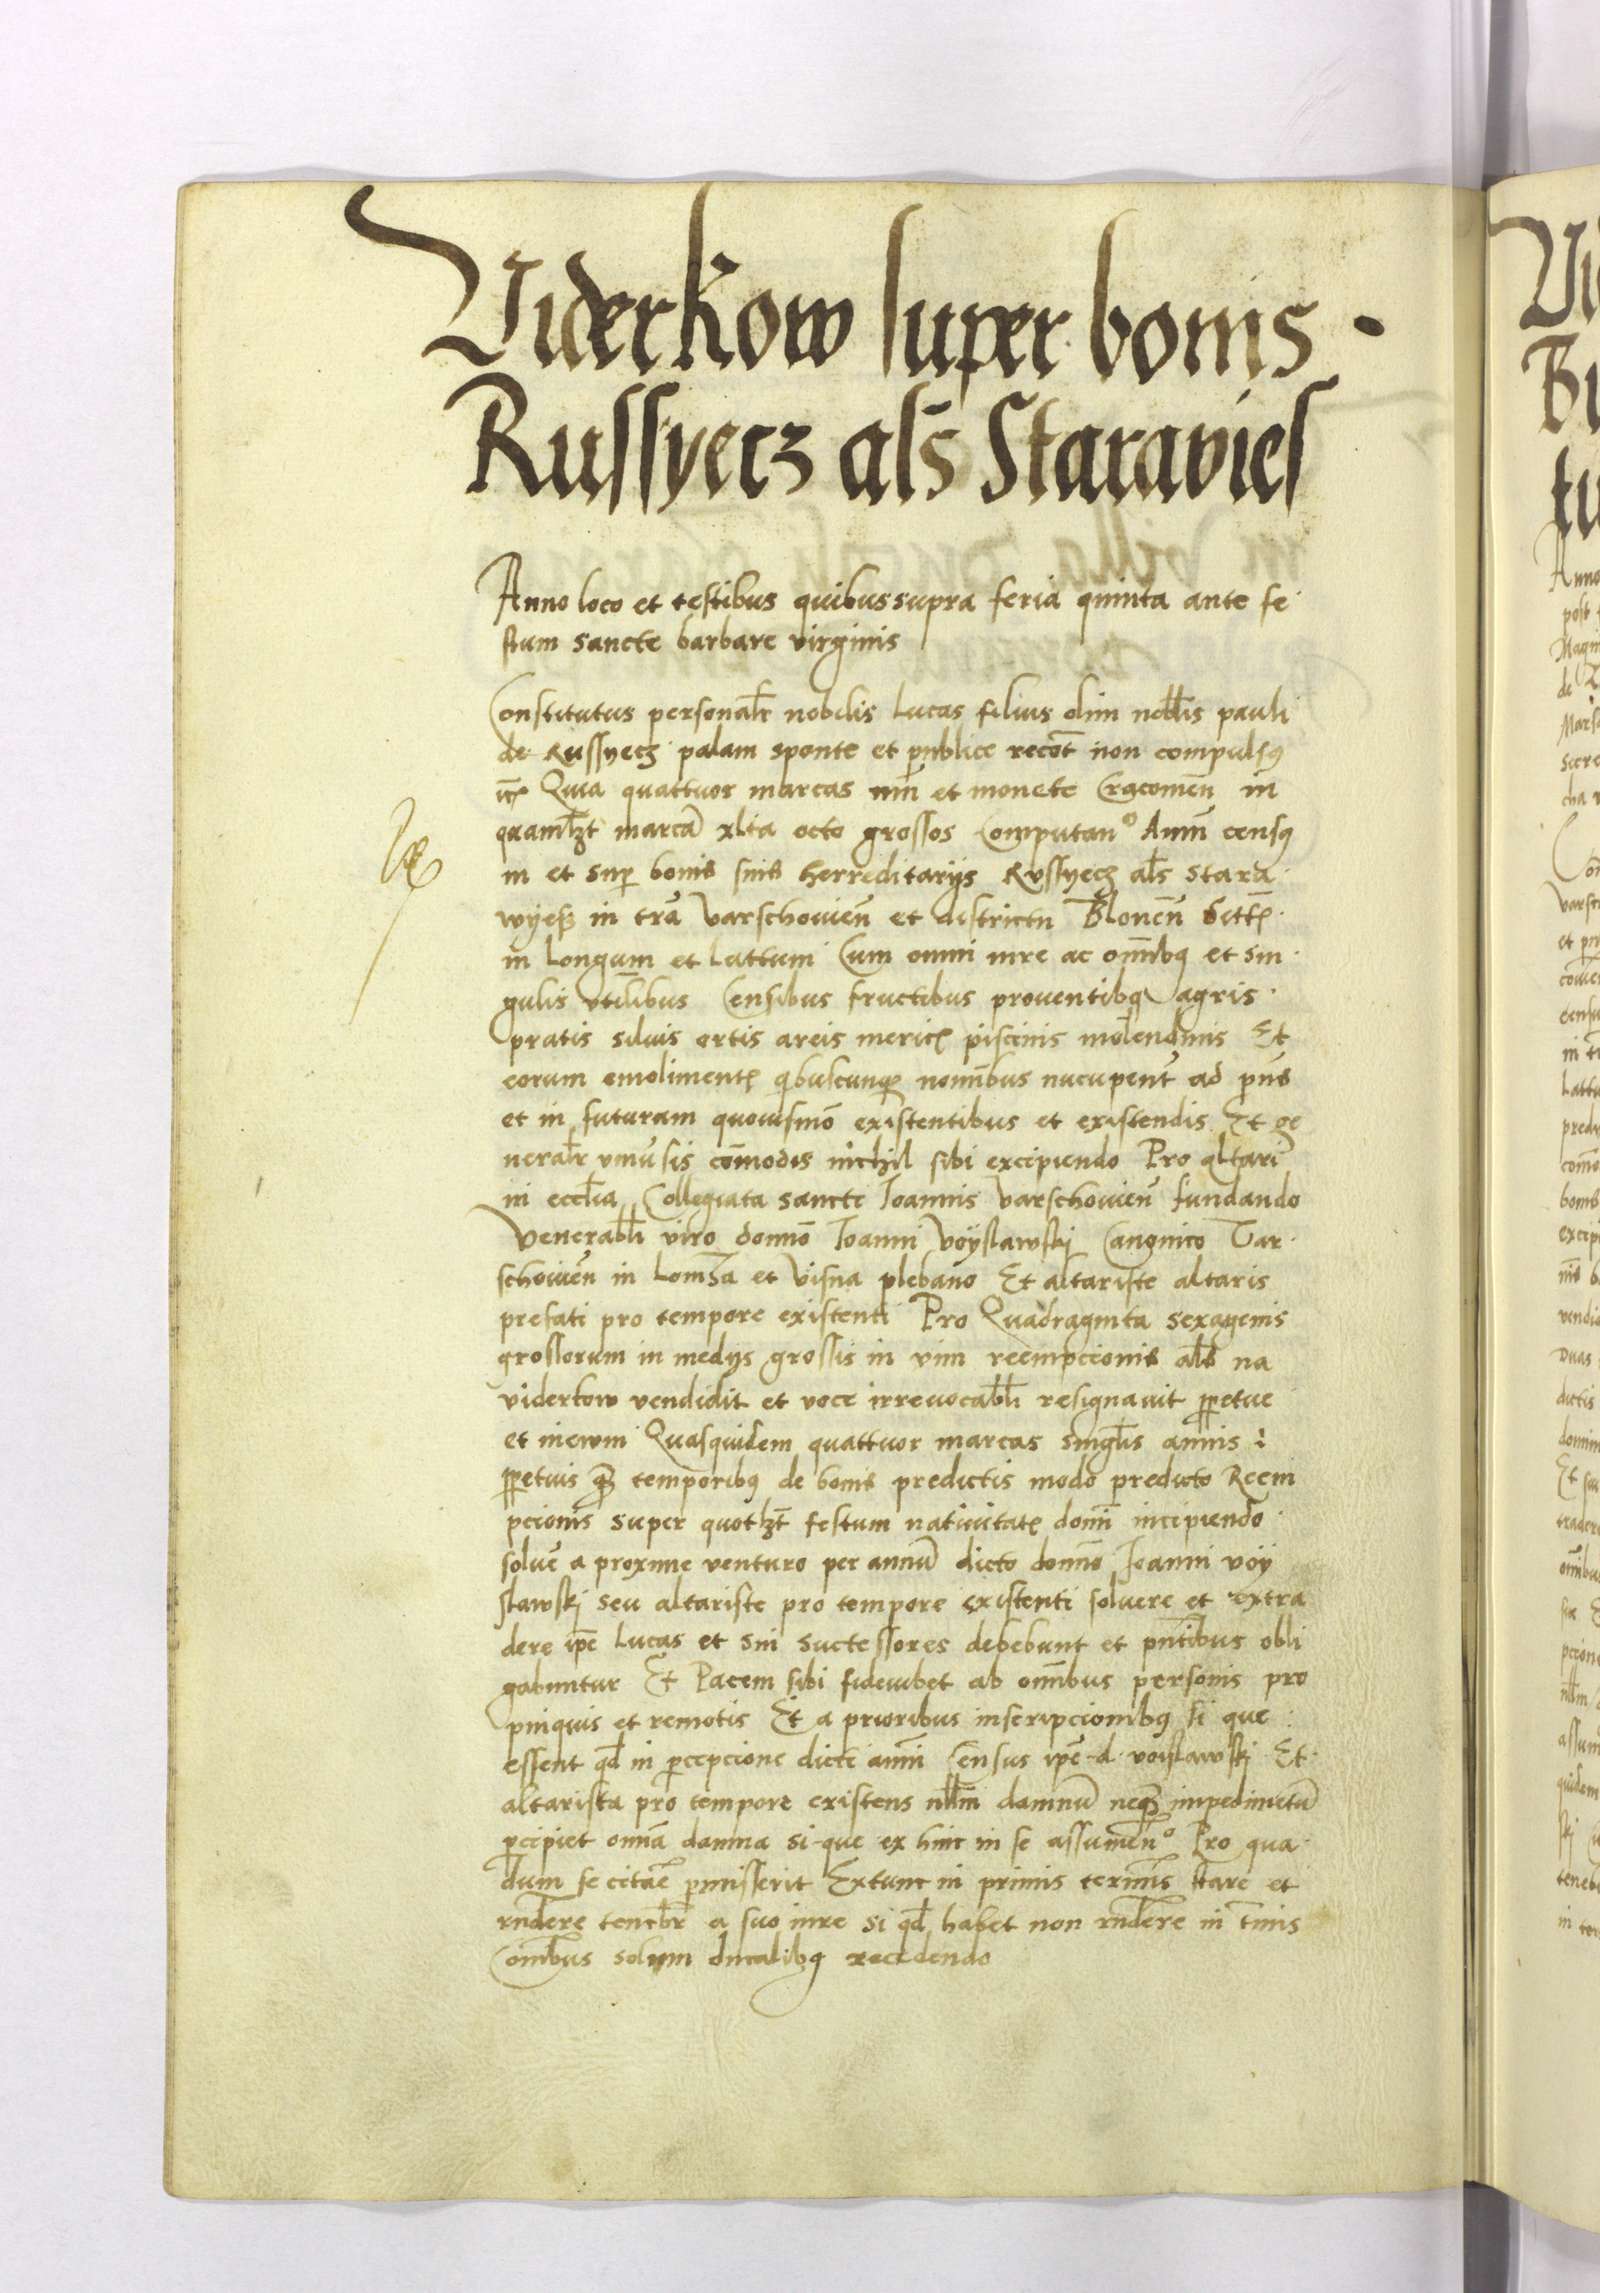 Viderkow super bonis
Russyecz als Staravies
Anno loco et testibus quibus supra feria quinta ante fe
stum sancte barbare virginis
Constitutus personalr nobilis Lucas filius olim nobllis pauli
de Russyecz palam sponte et publice recot non compulsq
Quia quattuor marcas nun et monete Cracomen in
quamlzt marca xlta octo grossos Computano Anni censq
in et sup bonis suis herreditarijs Russyecz als stara
wyess in tra Varschouien et districtu Blonen sitt
in Longum et Lattum Cum omni iure ac omibq et sin
gulis vtilibus Censibus fructibus prouentibq agris
pratis siluis ortis areis meric piscinis molendinis Et
eorum emoliment qbuscunq nominbus nucupent ad pns
et in futuram quouismo existentibus et existendis Et ge
neralr vniusis comodis nichil sibi excipiendo Pro altari
in ecclia Collegiata sancti Ioannis varschouien fundando
Venerabli viro domno Ioanni Voyslawski Canonico Var
schouien in Lomza et Visna plebano Et altariste altaris
prefati pro tempore existenti Pro Quadraginta sexagenis
grossorum in medijs grossis in vim reempcionis als na
viderkow vendidit et voce irreuocabli resignauit ppetue
et in ewm Quasquidem quattuor marcas singlis annis i
ppetuis temporibq de bonis predictis modo predicto Reem
pcionis super quotlzt festum natiuitat domi incipiendo
solue a proxime venturo per annu dicto domno Ioanni voy
slawski seu altariste pro tempore existenti soluere et extra
dere ipe Lucas et sui successores debebunt et pntibus obli
gabuntur Et Pacem sibi fideiubet ab omibus personis pro
pinquis et remotis Et a prioribus inscripcionibq si que
essent qd in pcepcione dicti anni Census ipe d voislawski Et
altarista pro tempore existens nllm damnu neq impedimetu
pcipiet omia damna si que ex hinc in se assumeno Pro qua
dum se citae pmisserit Extunc in primis terminis stare et
rndere tenebr a suo iure si qd habet non rndere in tmis
omibus solum ducalibq recedendo